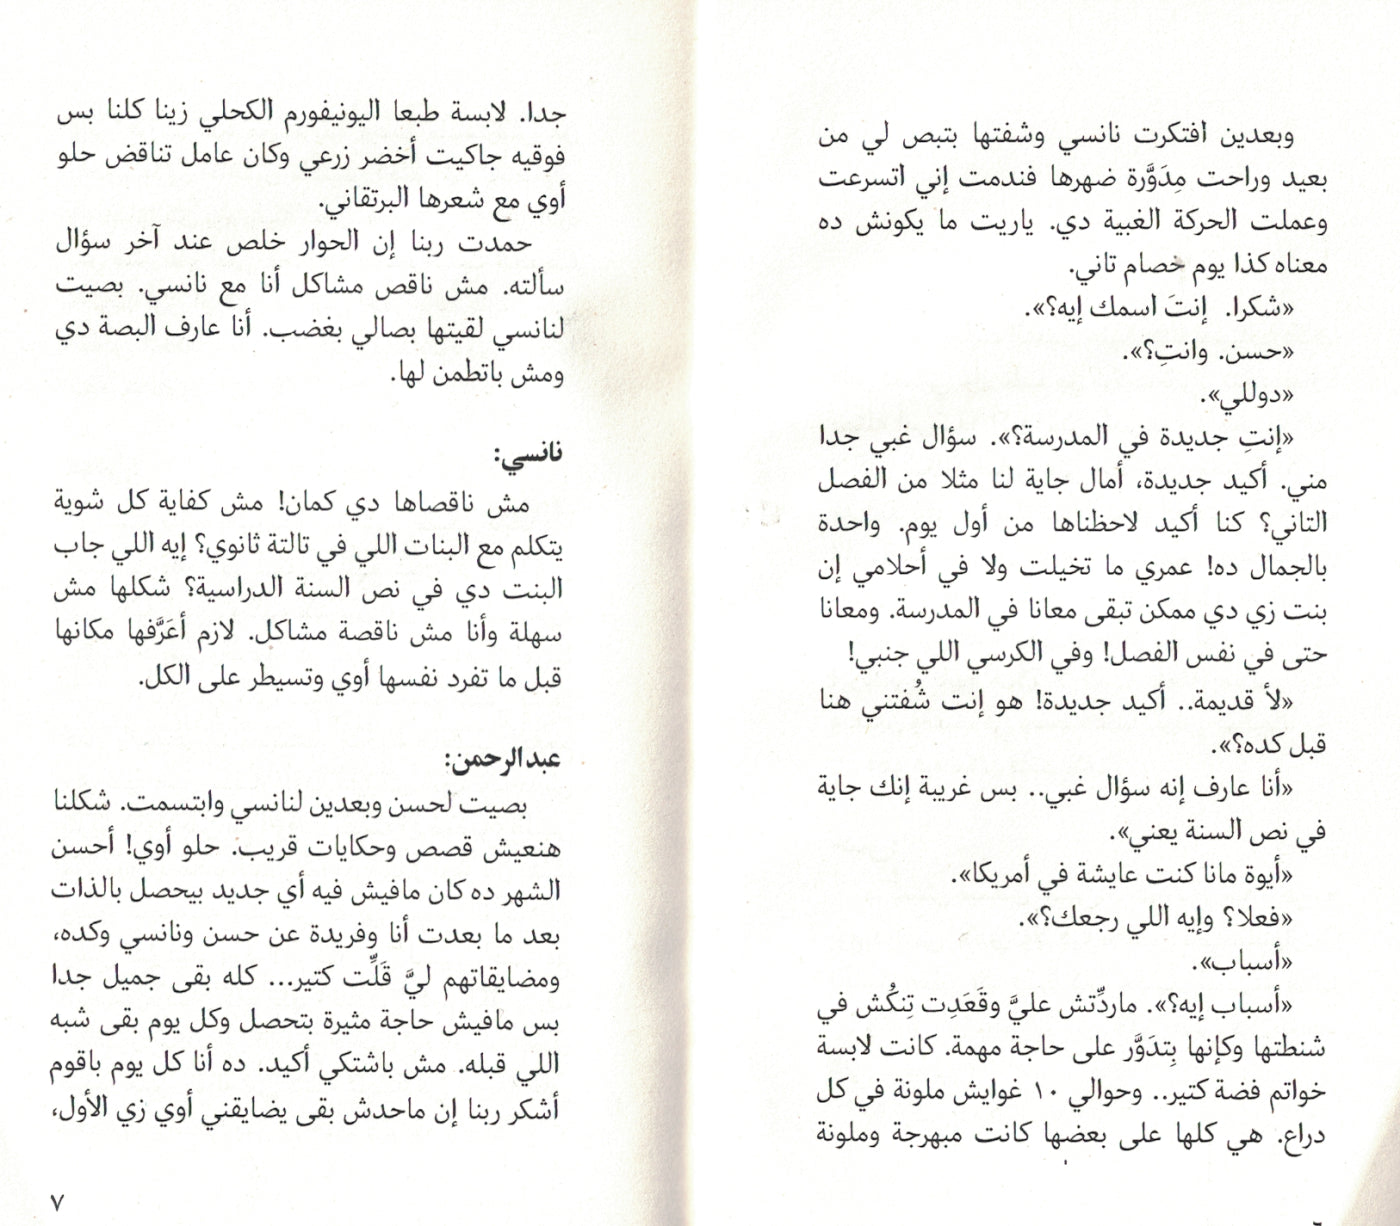 وبعدين افتكرت نانسي وشفتها بتبص لي من
بعيد وراحت مِدَوَّرة ضهرها فندمت إني اتسرعت
وعملت الحركة الغبية دي. ياريت ما يكونش ده
معناه كذا يوم خصام تاني.
«شكرا. إنتَ اسمك إيه؟».
«حسن. وانتِ؟».
«دوللي».
«إنتِ جديدة في المدرسة؟». سؤال غبي جدا
مني. أكيد جديدة، أمال جاية لنا مثلا من الفصل
التاني؟ كنا أكيد لاحظناها من أول يوم. واحدة
بالجمال ده! عمري ما تخيلت ولا في أحلامي إن
بنت زي دي ممكن تبقى معانا في المدرسة. ومعانا
حتى في نفس الفصل! وفي الكرسي اللي جنبي!
«لأ قديمة.. أكيد جديدة! هو إنت شُفتني هنا
قبل كده؟».
«أنا عارف إنه سؤال غبي.. بس غريبة إنك جاية
في نص السنة يعني».
«أيوة مانا كنت عايشة في أمريكا».
«فعلا؟ وإيه اللي رجعك؟».
«أسباب».
«أسباب إيه؟». ماردِّتش عليَّ وقَعَدِت تِنكُش في
شنطتها وكإنها بِتدَوَّر على حاجة مهمة. كانت لابسة
خواتم فضة كتير.. وحوالي ١٠ غوايش ملونة في كل
دراع. هي كلها على بعضها كانت مبهرجة وملونة
جدا. لابسة طبعا اليونيفورم الكحلي زينا كلنا بس
فوقيه جاكيت أخضر زرعي وكان عامل تناقض حلو
أوي مع شعرها البرتقاني.
حمدت ربنا إن الحوار خلص عند آخر سؤال
سألته. مش ناقص مشاكل أنا مع نانسي. بصيت
لنانسي لقيتها بصالي بغضب. أنا عارف البصة دي
ومش باتطمن لها.
نانسي:
مش ناقصاها دي كمان! مش كفاية كل شوية
يتكلم مع البنات اللي في تالتة ثانوي؟ إيه اللي جاب
البنت دي في نص السنة الدراسية؟ شكلها مش
سهلة وأنا مش ناقصة مشاكل. لازم أعَرَّفها مكانها
قبل ما تفرد نفسها أوي وتسيطر على الكل.
عبدالرحمن:
بصيت لحسن وبعدين لنانسي وابتسمت. شكلنا
هنعيش قصص وحكايات قريب. حلو أوي! أحسن
الشهر ده كان مافيش فيه أي جديد بيحصل بالذات
بعد ما بعدت أنا وفريدة عن حسن ونانسي وكده،
ومضايقاتهم ليَّ قَلِّت كتير... كله بقى جميل جدا
بس مافيش حاجة مثيرة بتحصل وكل يوم بقى شبه
اللي قبله. مش باشتكي أكيد. ده أنا كل يوم باقوم
أشكر ربنا إن ماحدش بقى يضايقني أوي زي الأول،
٧